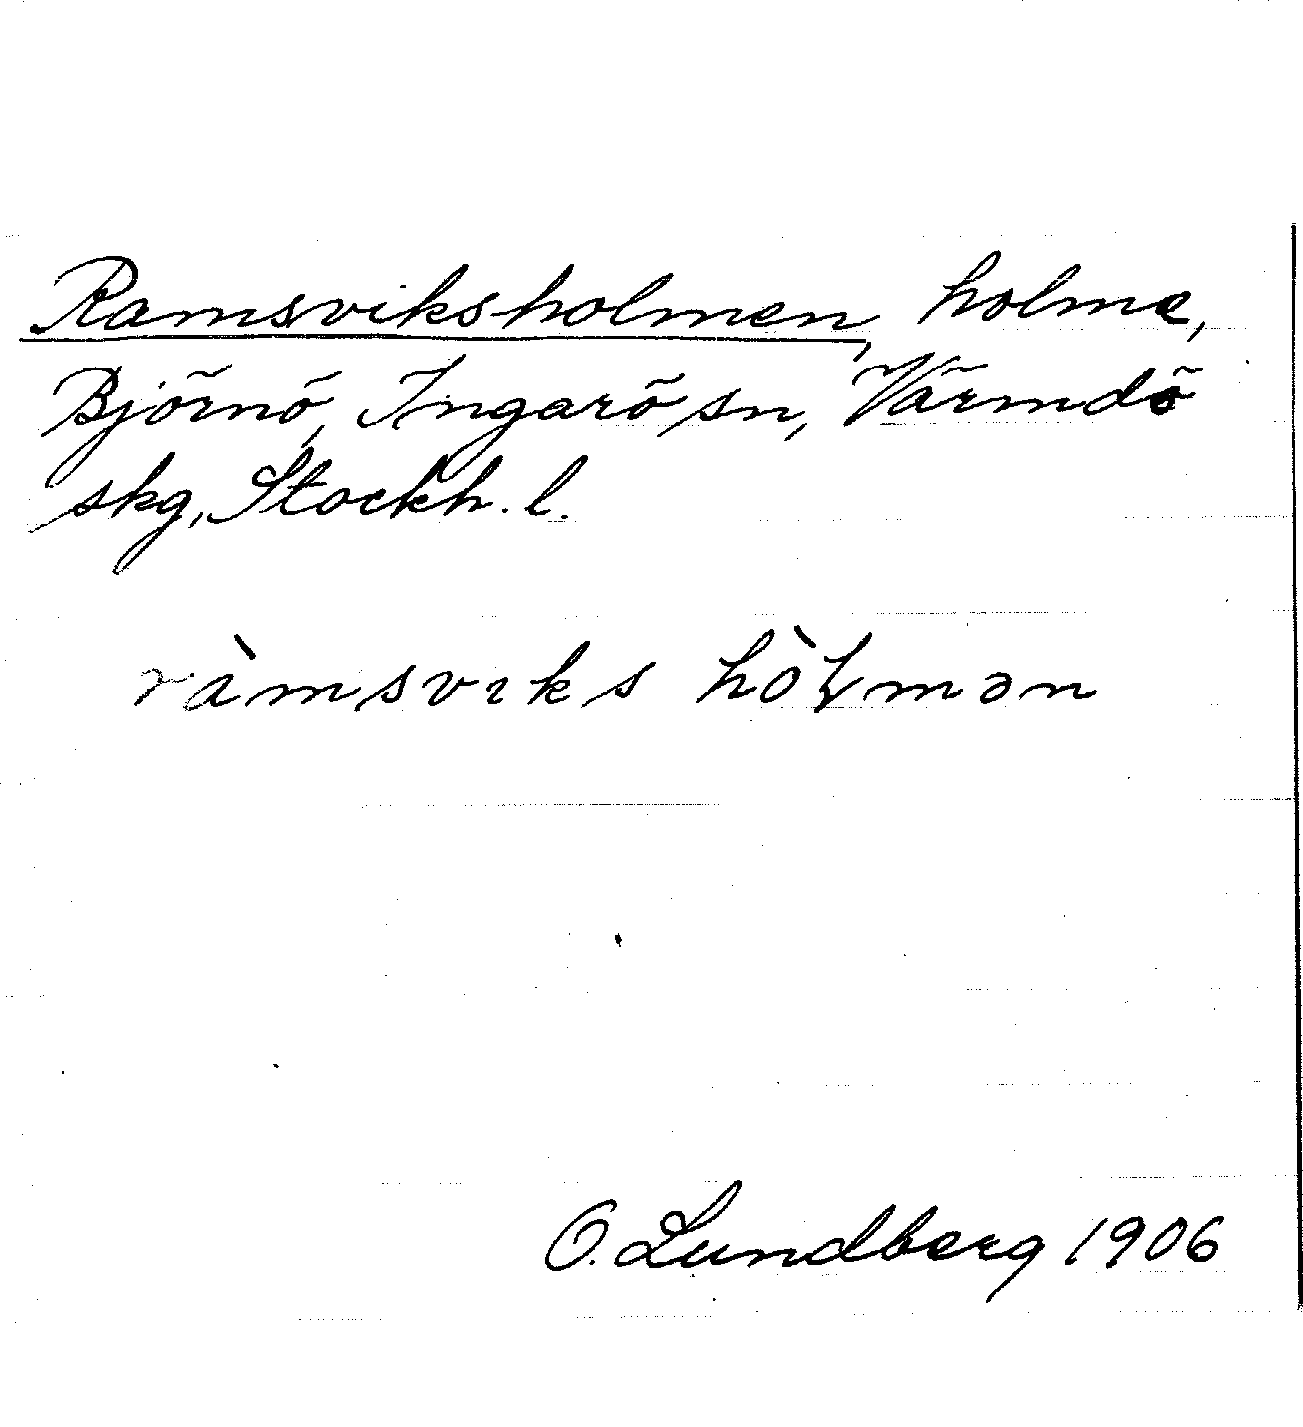 Ramsviksholmen, holme,
Björnö, Ingarö sn, Värmdö
skg, Stockh. l.
ràmsvıks hòɫmən
O. Lundberg 1906